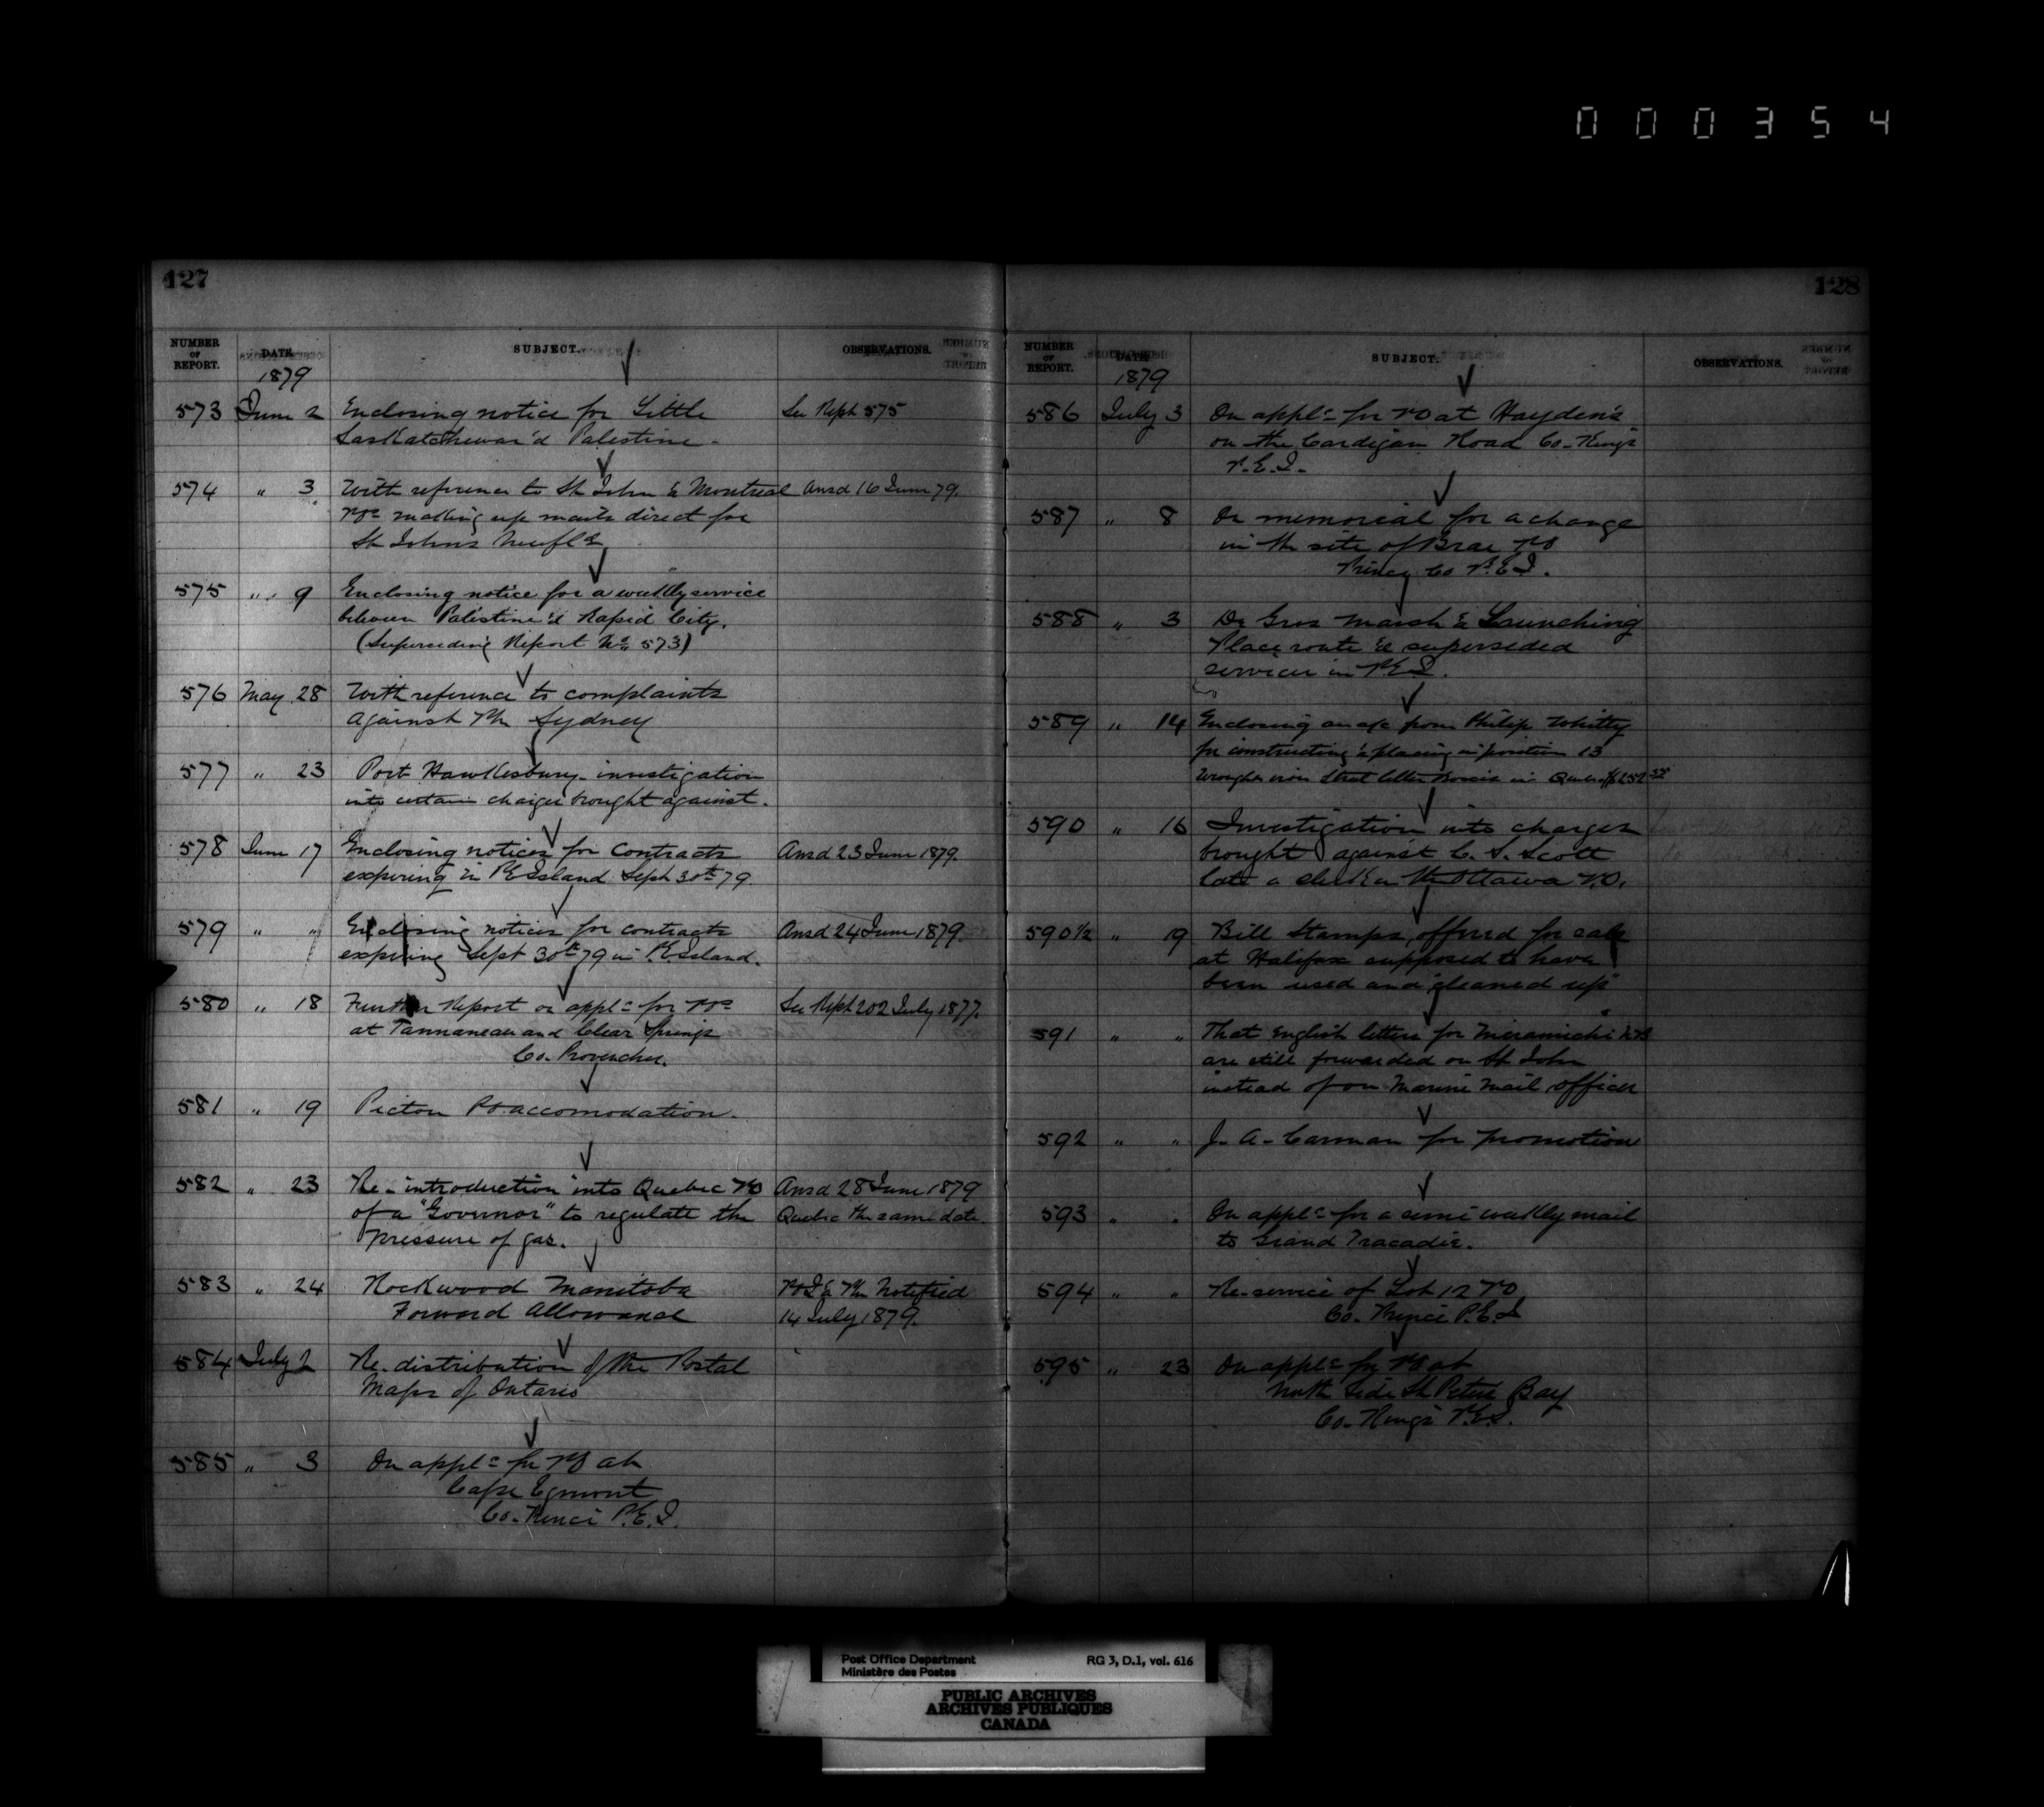 000354
127
NUMBER OF REPORT. DATE. SUBJECT. OBSERVATIONS.
1879
573 June 2 Enclosing notice for Little See Rept 575
Saskatchewan & Palestine -
574 " 3 With reference to St John & Montreal Ansd 16 June 79.
POs making up mails direct for
St Johns Newfld
575 " 9 Enclosing notice for a weekly service
between Palestine & Rapid City.
(Superseding Report No. 573)
576 May 28 With reference to complaints
against PM Sydney
577 " 23 Port Hawkesbury - investigation
into certain charges brought against.
578 June 17 Enclosing notices for contracts Ansd 23 June 1879.
expiring in PE Island Sept 30th 79.
579 " " Enclosing notices for contracts Ansd 24 June 1879.
expiring Sept 30th 79 in P.E. Island.
580 " 18 Further Report on appln for POs See Rept 202 July 1877.
at and Clear Springs
Co. Provencher.
581 " 19 Picton PO accomodation.
582 " 23 Re-introduction into Quebec PO Ansd 28 June 1879
of a "Governor" to regulate the Quebec the same date.
pressure of gas.
583 " 24 Rockwood Manitoba POI & PM Notified
Forward Allowance 14 July 1879.
584 July 2 Re. distribution of the Postal
Maps of Ontario
585 " 3 On appln for PO at
Cape Egmont
Co. Prince P.E.I.
128
NUMBER OF REPORT. DATE SUBJECT. OBSERVATIONS.
1879
586 July 3 On appln for PO at Hayden's
on the Cardigan Road Co. Kings
P.E.I.
587 " 8 On memorial for a change
in the site of Brae PO
Prince Co P.E.I.
588 " 3 De Gros Marsh & Launching
Place route & superseded
services in P.E.I.
589 " 14 Enclosing an a/c from Philip Whitty
for constructing & placing in position 13
wrought iron Street letter Boxes in Quebec $252
590 " 16 Investigation into charges
brought against C. S. Scott
late a clerk in the Ottawa P.O.
590 1/2 " 19 Bill Stamps offered for sale
at Halifax supposed to have
been used and "cleaned up"
591 " " That English letters for Miramichi N.B
are still forwarded on St John
instead of on Marine Mail officer
592 " " J. A. Carman for promotion
593 " " On appln for a semi weekly mail
to Grand Tracadie.
594 " " Re-service of Lot 12 PO
Co. Prince P.E.I
595 " 23 On appln for PO at
North Side St Peters Bay
Co. Kings P.E.I.
Post Office Department RG 3, D.1, vol. 616
Ministère des Postes
PUBLIC ARCHIVES
ARCHIVES PUBLIQUES
CANADA